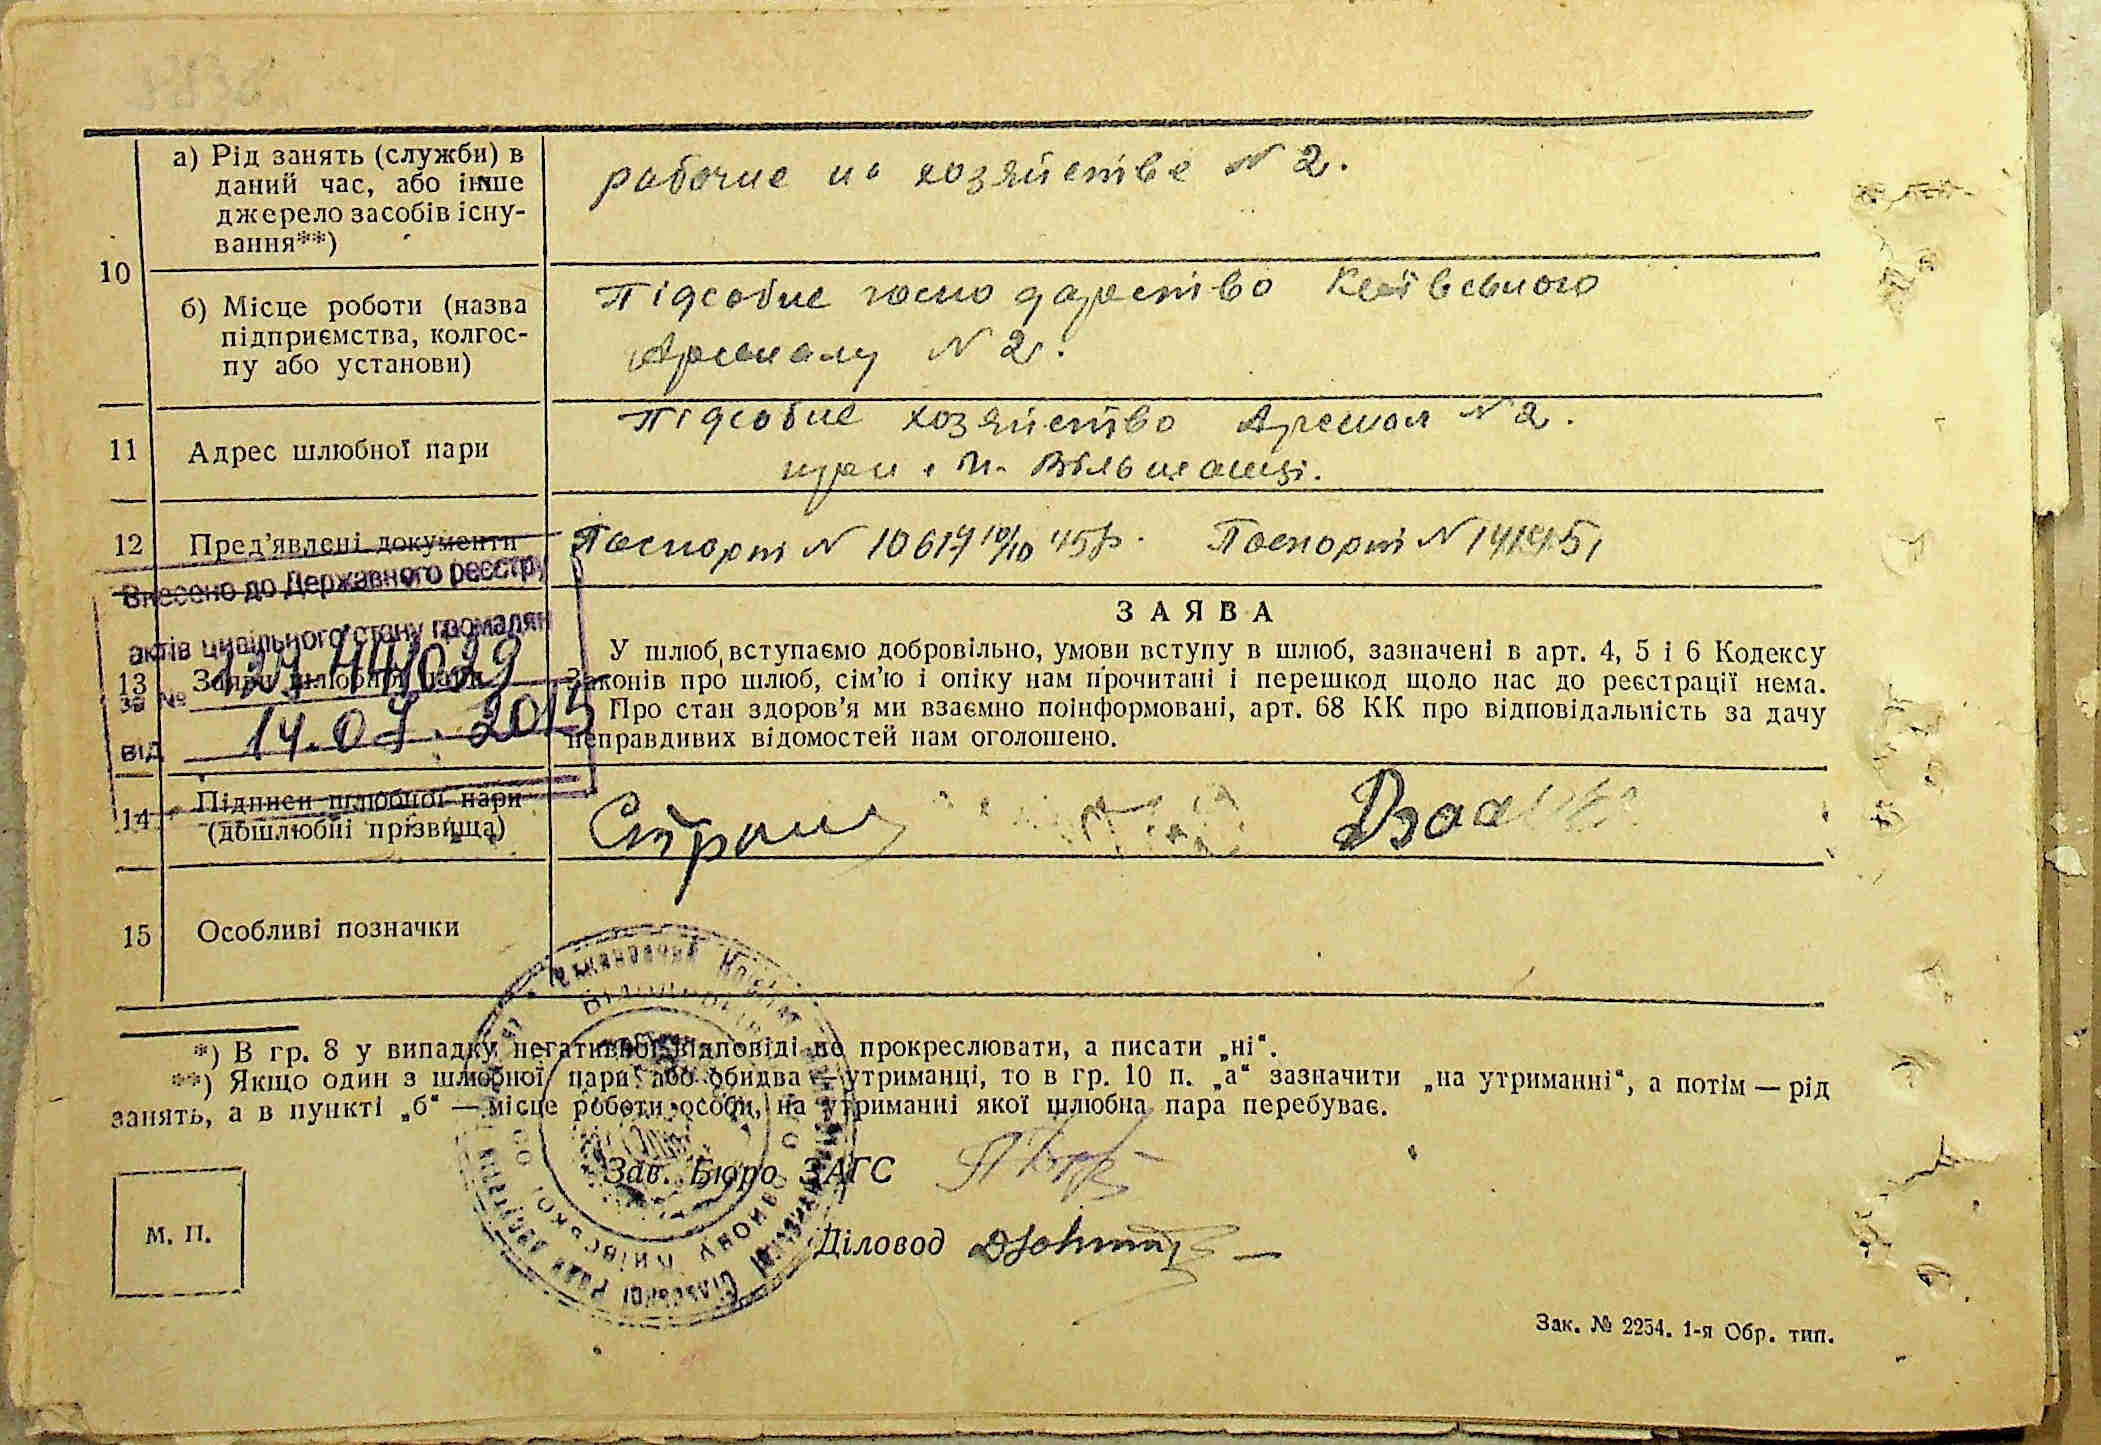 10
а) Рід занять (служби) в
даний час, або інше
джерело засобів існу-
вання**)
рабочие на хозяйстве N 2.
б) Місце роботи (назва
підприємства, колгос-
пу або установи)
Підсобне господарство Київського
Арсеналу N 2.
11 Адрес шлюбної пари
Підсобне хозяйство Арсенал N 2.
при с.
12 Пред'явлені документи
Паспорт N 10617 10/10 45р. Паспорт N
Внесено до Державного реєстру
актів цивільного стану громадян
за №
від 14.07.2015
13 Заява шлюбної пари
ЗАЯВА
У шлюб вступаємо добровільно, умови вступу в шлюб, зазначені в арт. 4, 5 і 6 Кодексу
Законів про шлюб, сім'ю і опіку нам прочитані і перешкод щодо нас до реєстрації нема.
Про стан здоров'я ми взаємно поінформовані, арт. 68 КК про відповідальність за дачу
неправдивих відомостей нам оголошено.
14 Підписи шлюбної пари
(дошлюбні прізвища)
15 Особливі позначки
*) В гр. 8 у випадку негативної відповіді не прокреслювати, а писати „ні“.
**) Якщо один з шлюбної пари або обидва — утриманці, то в гр. 10 п. „а“ зазначити „на утриманні“, а потім — рід
занять, а в пункті „б“ — місце роботи особи, на утриманні якої шлюбна пара перебуває.
Зав. Бюро ЗАГС
М. П.
Діловод
Зак. № 2254. 1-я Обр. тип.